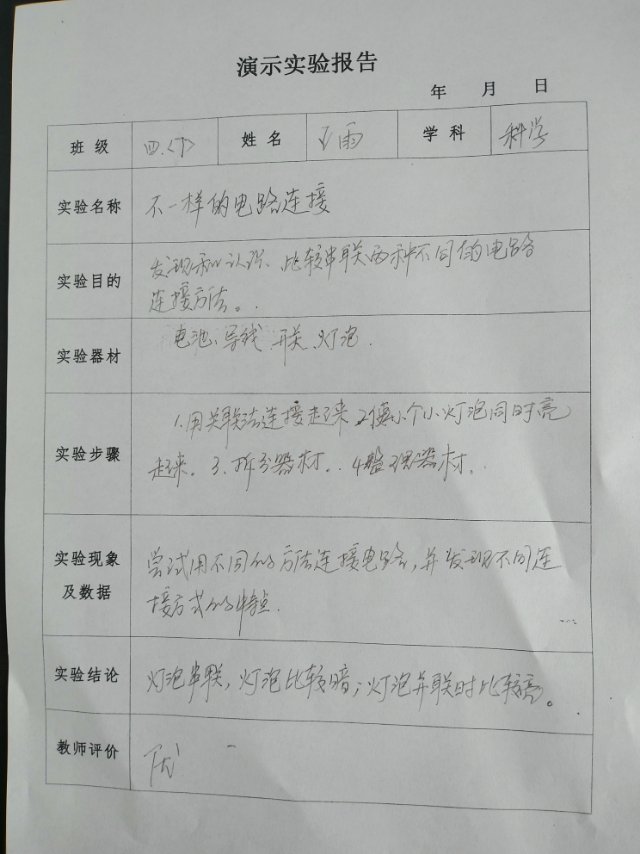 演示实验报告
年 月 日
班级 四.<下> 姓名 雨 学科 科学
实验名称 不一样的电路连接
实验目的 发现和认识、比较串联两种不同的电路
连接方法。
实验器材 电池、导线、开关、灯泡.
实验步骤 1.用关联法连接起来 2使小个小灯泡同时亮
起来。3、拆分器材.. 4整理器材..
实验现象
及数据
尝试用不同的方法连接电路,并发现不同连
接方式的特点.
实验结论 灯泡串联,灯泡比较暗;灯泡并联时比较亮。
教师评价 优